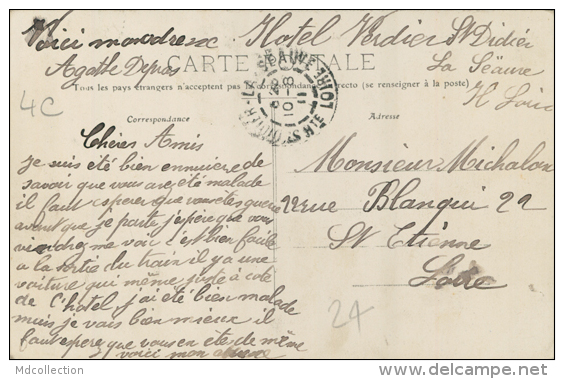 Voici mon adresse Hotel Verdier St Didier
Agathe Depras La Séauve
H Loire
CARTE POSTALE
Tous les pays étrangers n'acceptent pas la Correspondance au recto (se renseigner à la poste)
4C
Correspondance Adresse
Chères Amis
Je suis été bien ennuiere de
savoir que vous avez été malade
il faut esperer que vous etes guerie
avant que je parte j'espere que vous
viendrez me voir c'est bien facile
a la sortie du train il y a une
voiture qui mème juste à coté
de l'hotel j'ai été bien malade
mais je vais bien mieux il
faut espere que vous en éte de même
voici mon
Monsieur Michalon
22 rue Blanqui 22
St Etienne
Loire
LA SÉAUVE
HTE LOIRE
24
Mdcollection
www.delcampe.net